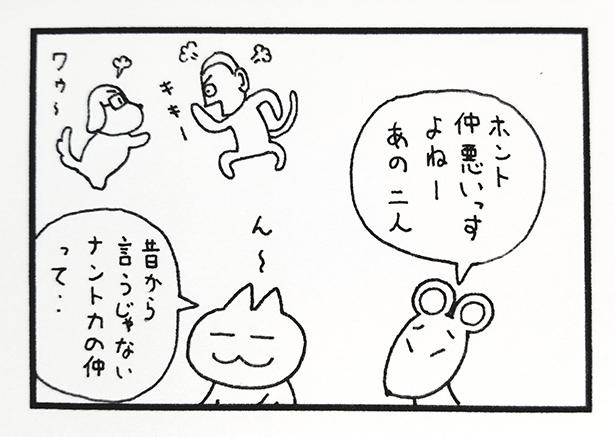 ホント
仲悪いっす
よねー
あの二人
キキー
ワゥ〜
ん〜
昔から
言うじゃない
ナントカの仲
って・・